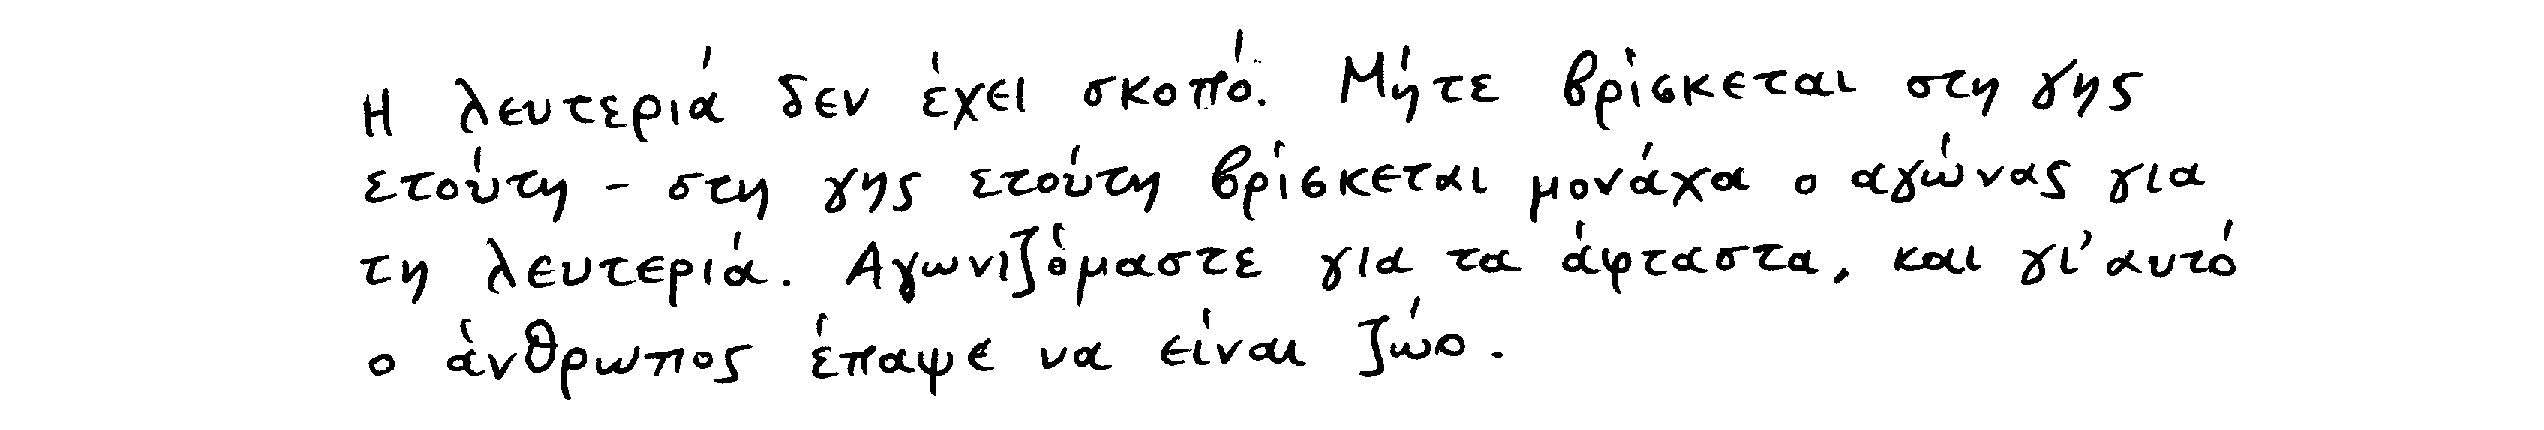 Η λευτεριά δεν έχει σκοπό. Μήτε βρίσκεται στη γης
ετούτη - στη γης ετούτη βρίσκεται μονάχα ο αγώνας για
τη λευτεριά. Αγωνιζόμαστε για τα άφταστα, και γι' αυτό
ο άνθρωπος έπαψε να είναι ζώο.